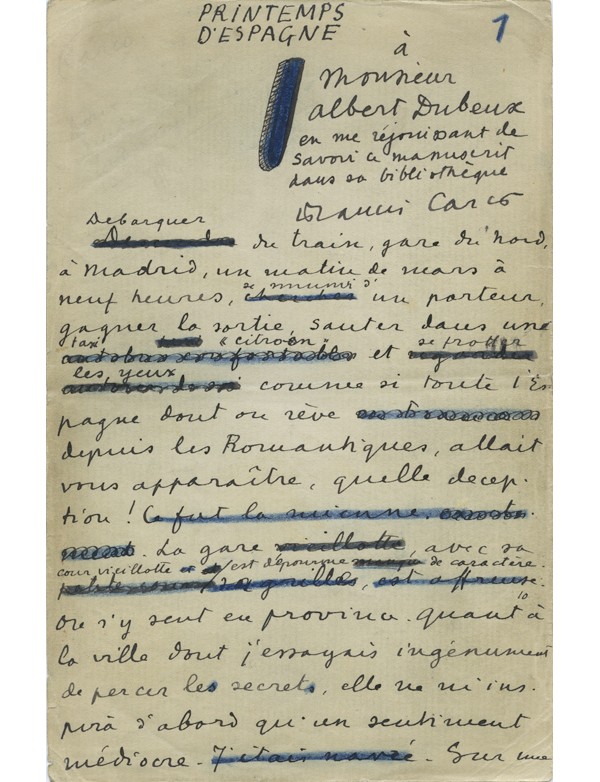 PRINTEMPS
D'ESPAGNE
1
à
Monsieur
Albert Dubeux
en me réjouissant de
savoir ce manuscrit
dans sa bibliothèque
Francis Carco
Débarquer
du train, gare du Nord,
à Madrid, un matin de mars à
se munir d'
neuf heures, chercher un porteur,
gagner la sortie, sauter dans une
taxi "citroën" se frotter
autobus confortables et regarder
les yeux
comme si toute l'Es-
pagne dont on rêve
depuis les Romantiques, allait
vous apparaître, quelle décep-
tion ! Ce fut la mienne.
La gare vieillotte, avec sa
cour vieillotte et est dépourvue de caractère.
petite cour grilles, est affreuse.
On s'y sent en province. Quant à
la ville dont j'essayais ingénument
de percer les secrets, elle ne m'ins-
pira d'abord qu'un sentiment
médiocre. J'étais navré. Sur une